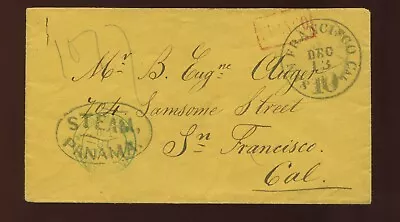 SAN FRANCISCO CAL.
DEC
13
10
Mr. B. Eugne Auger
704 Samsome Street
Sn Francisco
Cal.
STEAM,
PANAMA.